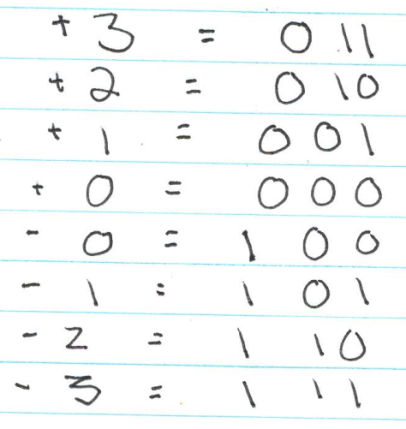 + 3 = 0 11
+ 2 = 0 10
+ 1 = 0 0 1
+ 0 = 0 0 0
- 0 = 1 0 0
- 1 = 1 0 1
- 2 = 1 1 0
- 3 = 1 1 1